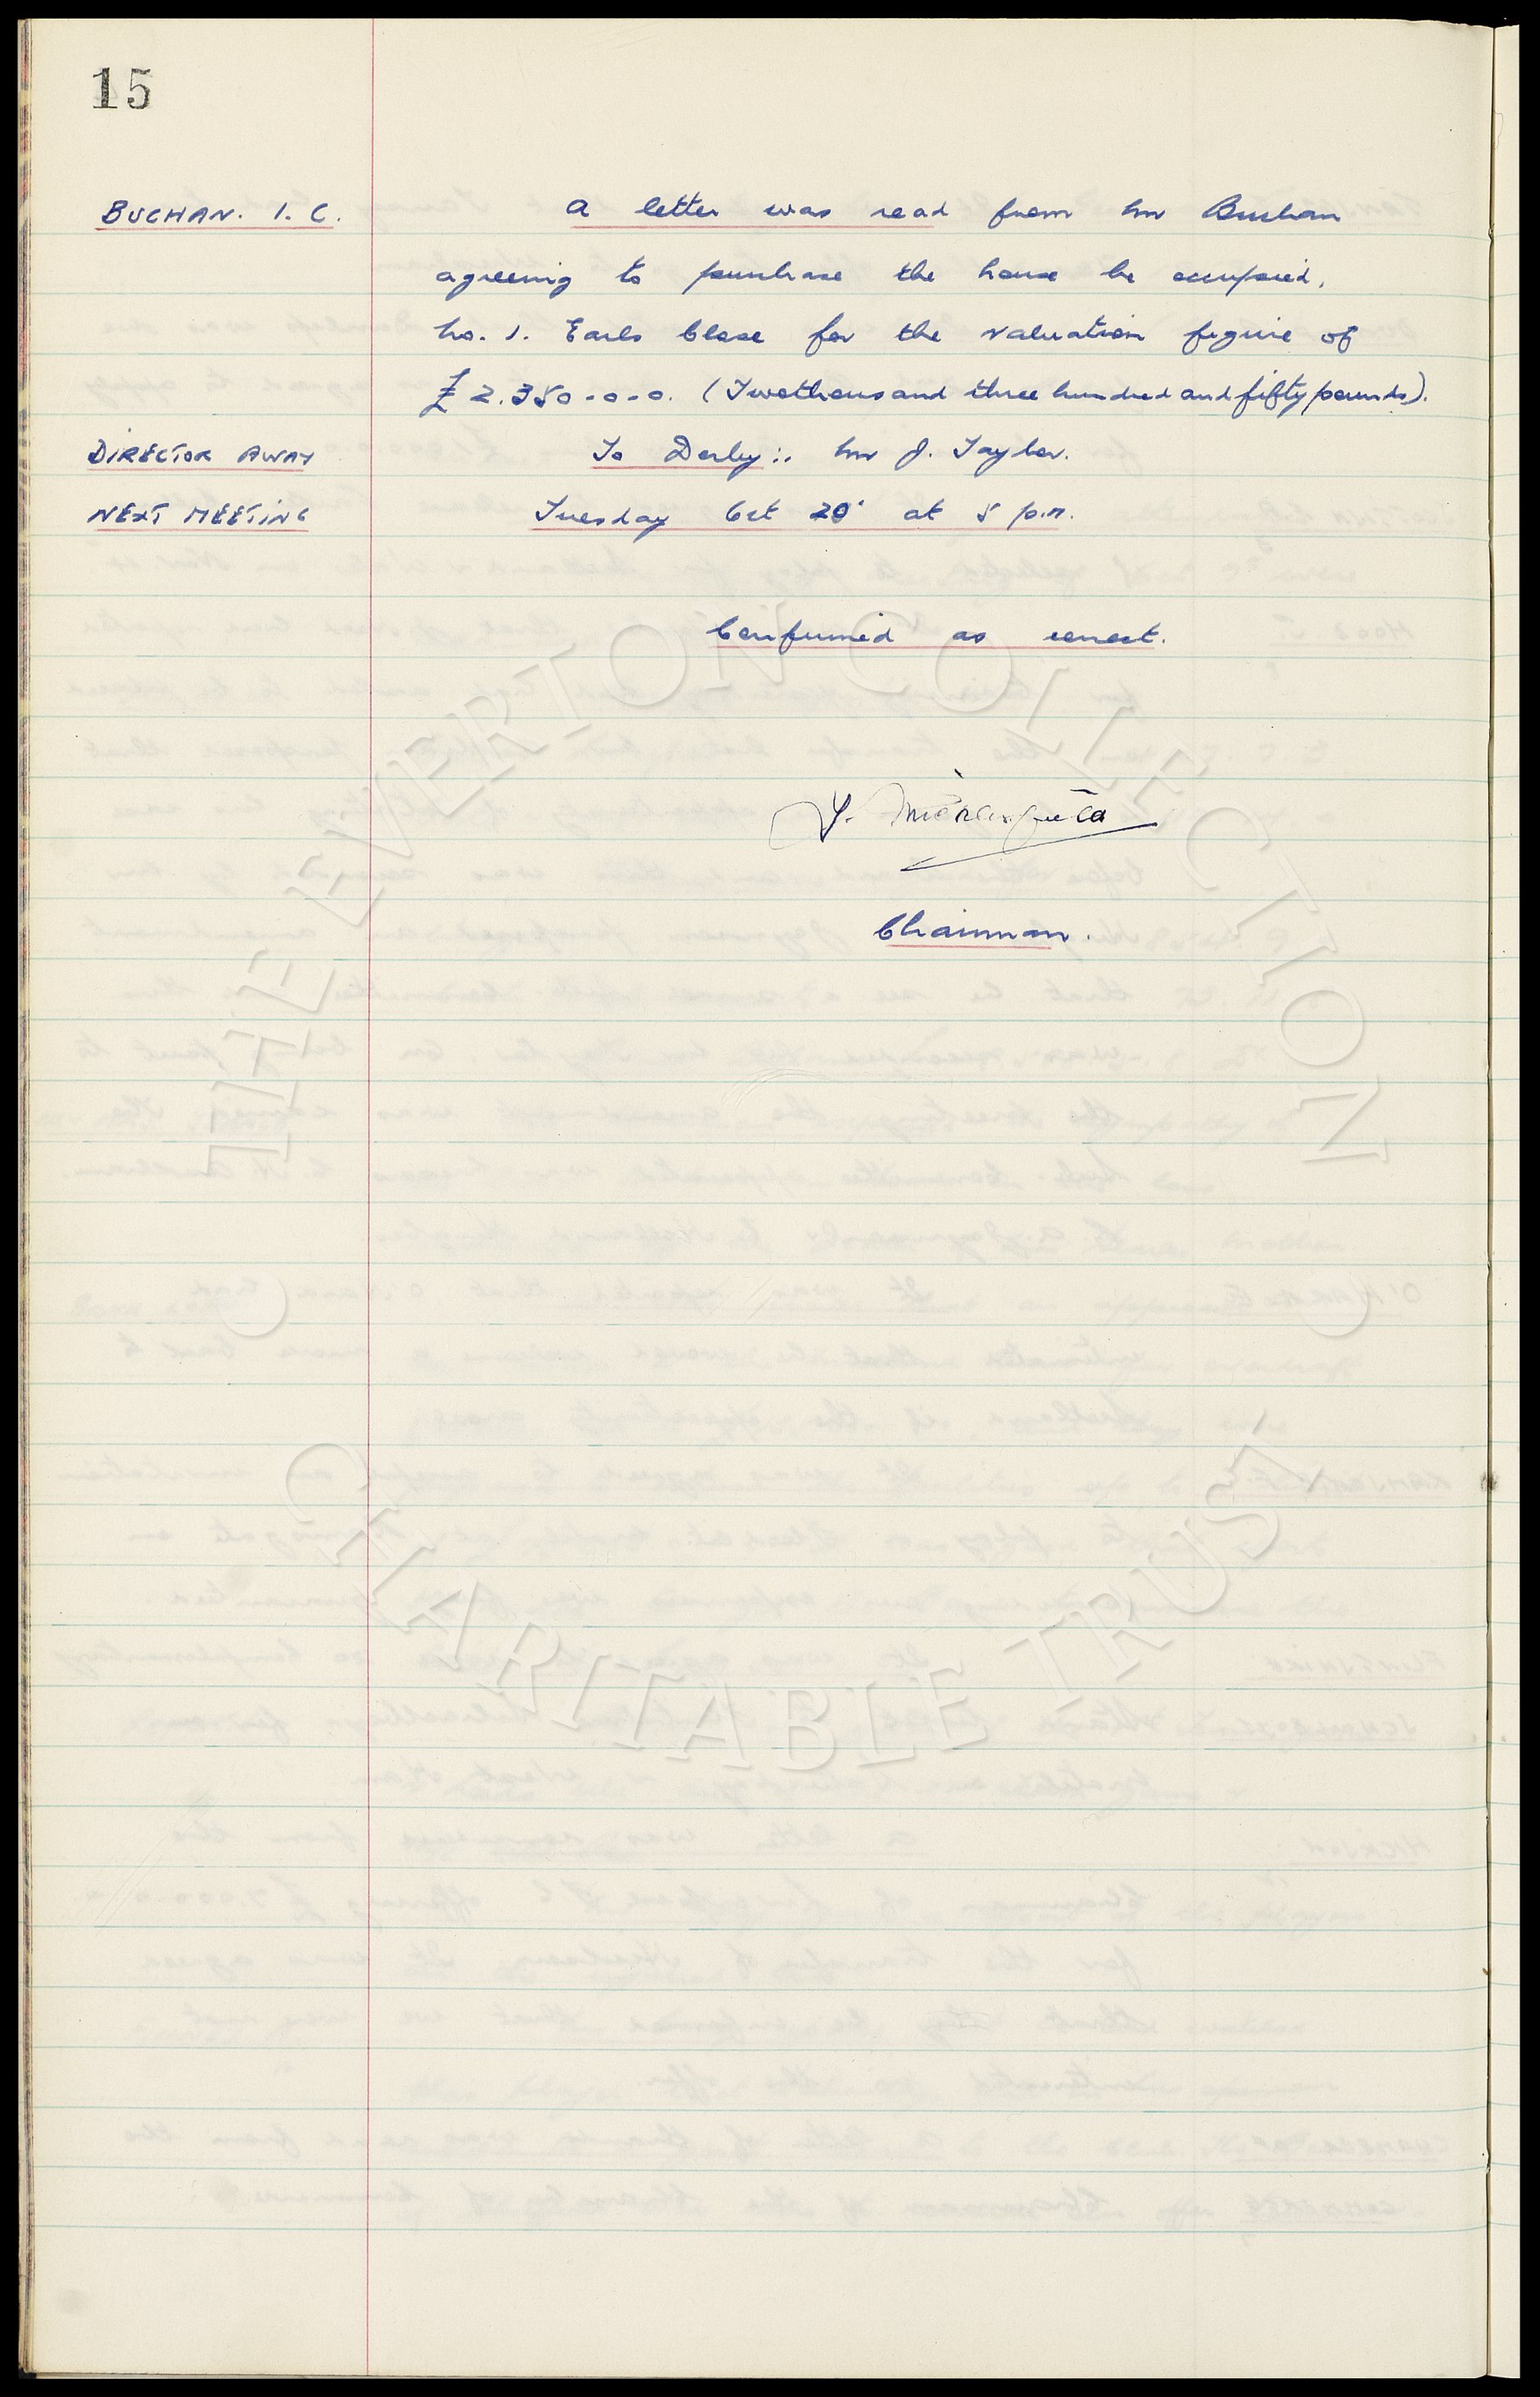 15
BUCHAN. I. C. A letter was read from Mr Buchan
agreeing to purchase the house he occupied,
No. 1. Earls Close for the valuation figure of
£2,350-0-0. (Two thousand three hundred and fifty pounds).
DIRECTOR AWAY To Derby:. Mr J. Taylor.
NEXT MEETING Tuesday Oct 20' at 5 p.m.
Confirmed as correct.
Chairman.
THE EVERTON COLLECTION
CHARITABLE TRUST